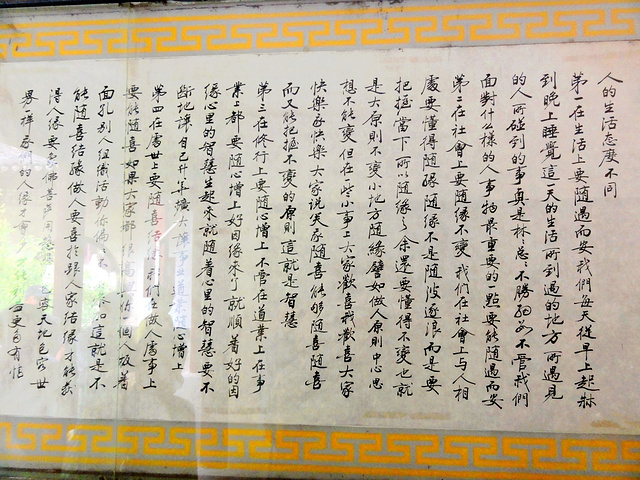 人的生活怎麼不同
第一在生活上要隨遇而安我們每天從早上起牀
到晚上睡覺這一天的生活所到過的地方所遇見
的人所碰到的事真是林〻總〻不勝不管我們
面對什么樣的人事物最重要的一點要能隨遇而安
第二在社會上要隨緣不變我們在社會上与人相
處要懂得隨緣隨緣不是隨波逐浪而是要
把握當下所以隨緣之余還要懂得不變也就
是大原則不變小地方隨緣譬如做人原則中心思
想不能變但在些小事上大家歡喜我歡喜大家
快樂我快樂大家說笑我隨喜能够隨喜隨喜
而又能把握不變的原則這就是智慧
第三在修行上要隨心增上不管在道業上在事
業上都要隨心增上好因緣來了就順着好的因
緣心里的智慧生起來就随着心里的智慧要不
斷地讓自己升华擴大讓事业道業心增上
第四在處世上要隨喜結緣我們在做人處事上
要能隨喜如果大家都個人板着
面孔别人組織活動你偏不參加這就是不
能随喜結緣做人要喜於跟人家結緣才能
得人緣要佛菩薩用慈悲天地包容世
界的人緣才更有恒